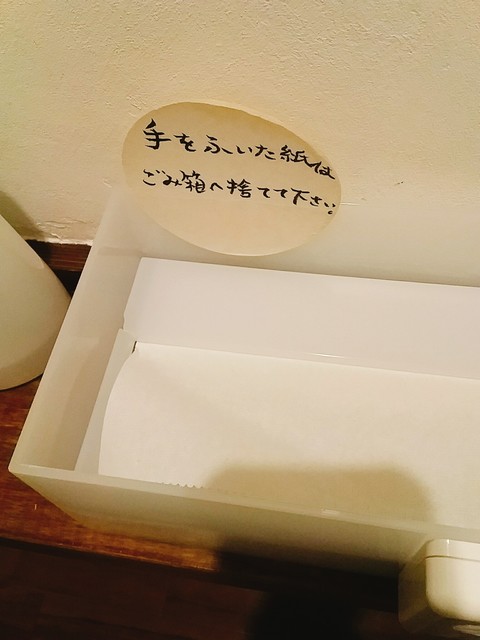 手をふいた紙は
ごみ箱へ捨てて下さい。